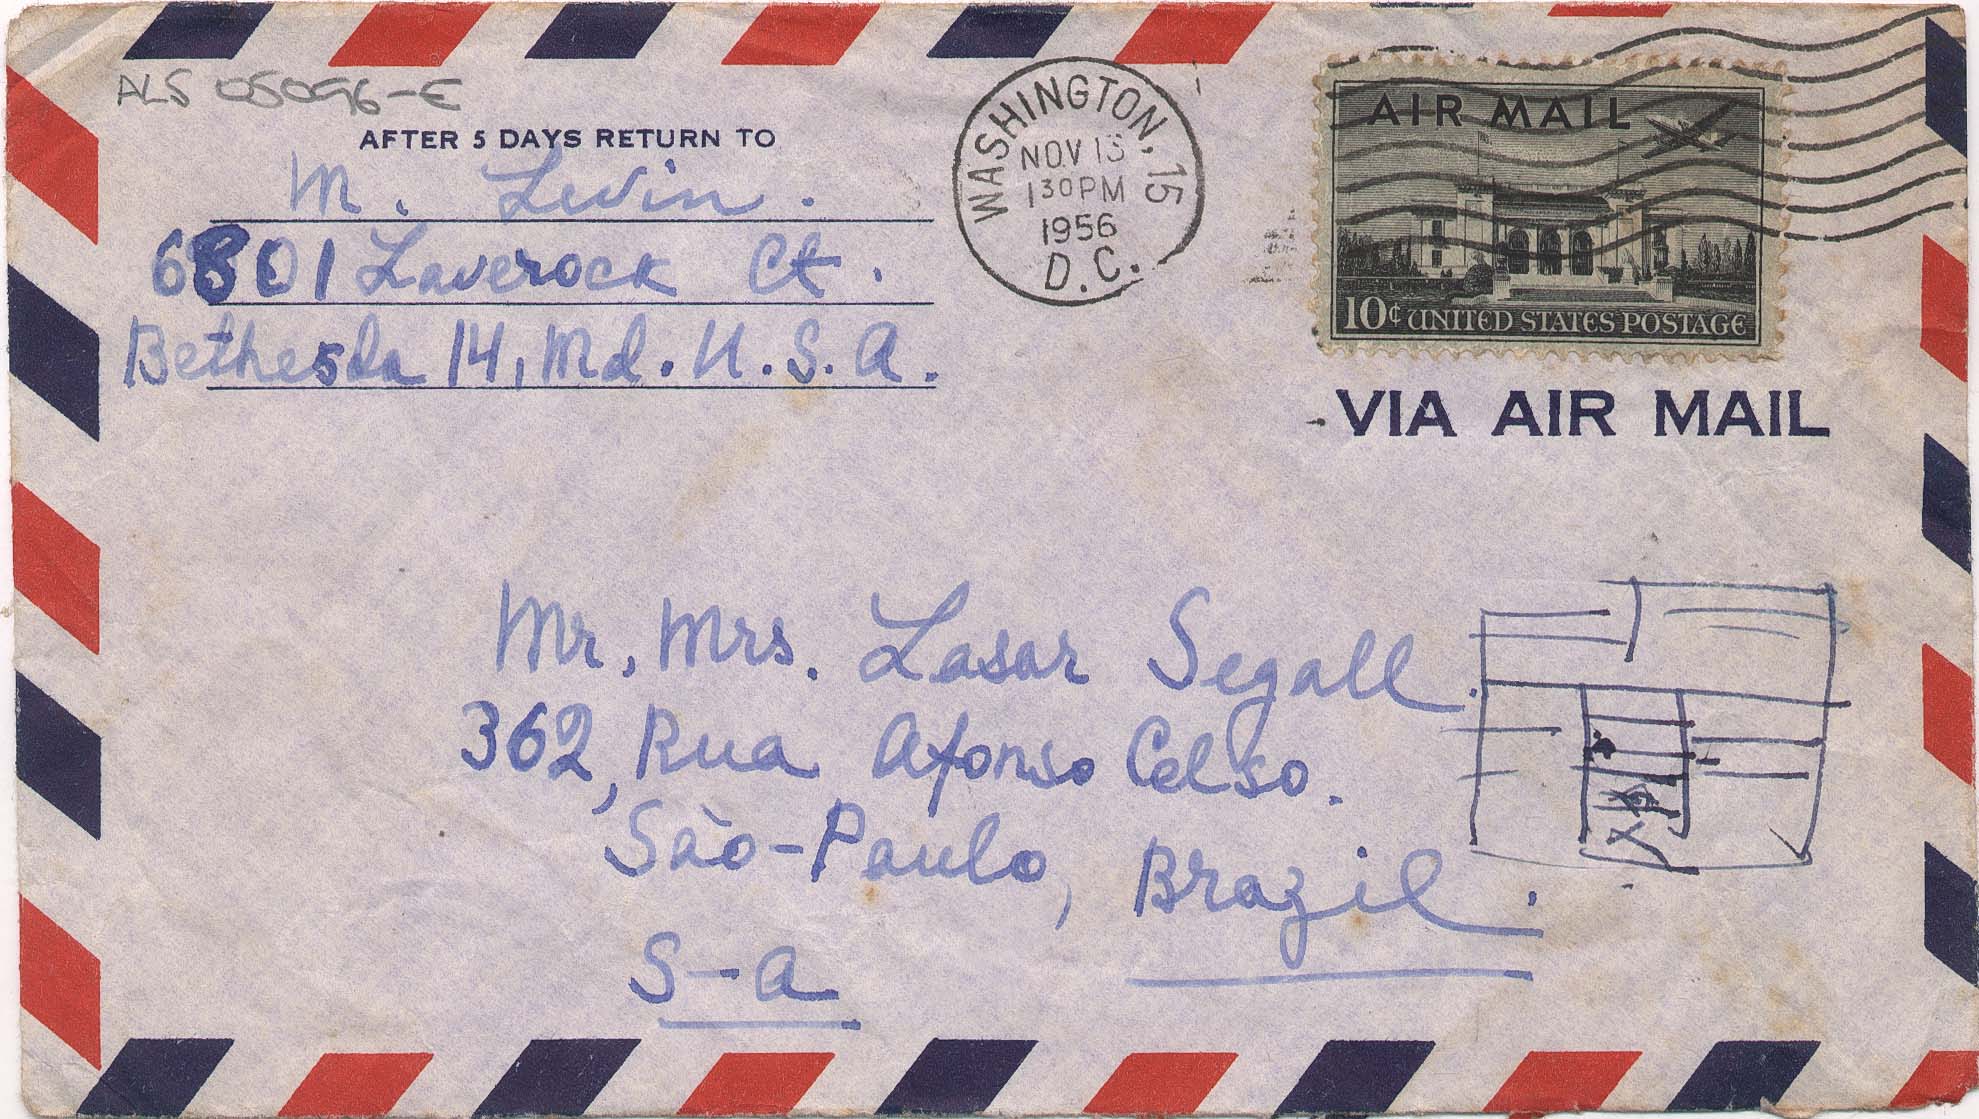 ALS 05096-E
AFTER 5 DAYS RETURN TO
M. Levin.
6801 Laverock Ct.
Bethesda 14, Md. U.S.A.
WASHINGTON, 15
NOV 13
1 30 PM
1956
D.C.
AIR MAIL
10¢ UNITED STATES POSTAGE
VIA AIR MAIL
Mr, Mrs. Lasar Segall.
362, Rua Afonso Celso.
São-Paulo, Brazil.
S-a